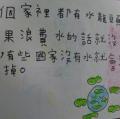 個家裡都有水龍頭
果浪費水的話就沒
有些個家沒有水就
掉。